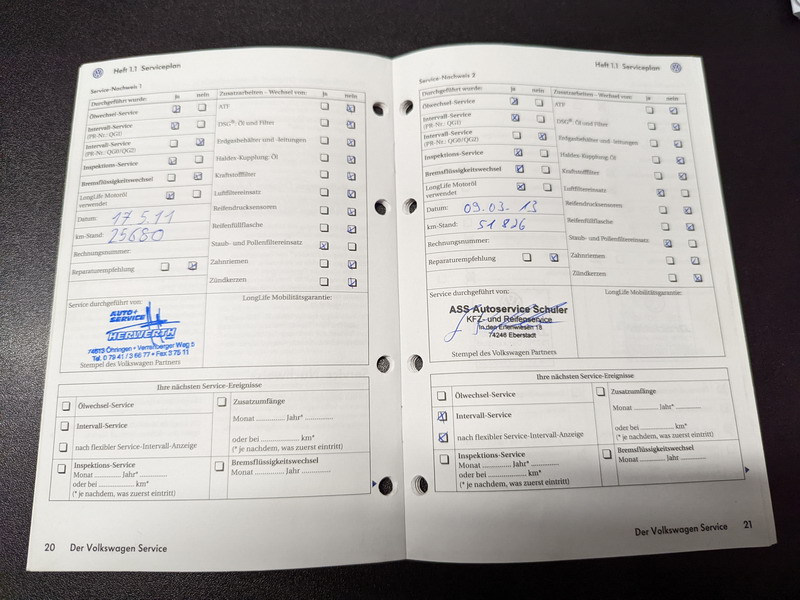 Heft 1.1 Serviceplan
Service-Nachweis 1
Durchgeführt wurde: ja nein
Ölwechsel-Service
Intervall-Service
(PR-Nr.: QG1)
Intervall-Service
(PR-Nr.: QG0/QG2)
Inspektions-Service
Bremsflüssigkeitswechsel
LongLife Motoröl
verwendet
Datum: 17 5.11
km-Stand: 25680
Rechnungsnummer:
Reparaturempfehlung
Zusatzarbeiten – Wechsel von: ja nein
ATF
DSG®: Öl und Filter
Erdgasbehälter und -leitungen
Haldex-Kupplung: Öl
Kraftstofffilter
Luftfiltereinsatz
Reifendrucksensoren
Reifenfüllflasche
Staub- und Pollenfiltereinsatz
Zahnriemen
Zündkerzen
Service durchgeführt von:
AUTO+
SERVICE
HERWERTH
74613 Öhringen • Verrenberger Weg 5
Tel. 0 79 41 / 3 66 77 • Fax 3 75 11
Stempel des Volkswagen Partners
LongLife Mobilitätsgarantie:
Ihre nächsten Service-Ereignisse
Ölwechsel-Service
Intervall-Service
nach flexibler Service-Intervall-Anzeige
Inspektions-Service
Monat ............ Jahr* ............
oder bei ............ km*
(* je nachdem, was zuerst eintritt)
Zusatzumfänge
Monat ............ Jahr* ............
oder bei ............ km*
(* je nachdem, was zuerst eintritt)
Bremsflüssigkeitswechsel
Monat ............ Jahr ............
20 Der Volkswagen Service
Heft 1.1 Serviceplan
Service-Nachweis 2
Durchgeführt wurde: ja nein
Ölwechsel-Service
Intervall-Service
(PR-Nr.: QG1)
Intervall-Service
(PR-Nr.: QG0/QG2)
Inspektions-Service
Bremsflüssigkeitswechsel
LongLife Motoröl
verwendet
Datum: 09.03.13
km-Stand: 51 826
Rechnungsnummer:
Reparaturempfehlung
Zusatzarbeiten – Wechsel von: ja nein
ATF
DSG®: Öl und Filter
Erdgasbehälter und -leitungen
Haldex-Kupplung: Öl
Kraftstofffilter
Luftfiltereinsatz
Reifendrucksensoren
Reifenfüllflasche
Staub- und Pollenfiltereinsatz
Zahnriemen
Zündkerzen
Service durchgeführt von:
ASS Autoservice Schuler
KFZ- und Reifenservice
In den Erlenwiesen 18
74246 Eberstadt
Stempel des Volkswagen Partners
LongLife Mobilitätsgarantie:
Ihre nächsten Service-Ereignisse
Ölwechsel-Service
Intervall-Service
nach flexibler Service-Intervall-Anzeige
Inspektions-Service
Monat ............ Jahr* ............
oder bei ............ km*
(* je nachdem, was zuerst eintritt)
Zusatzumfänge
Monat ............ Jahr* ............
oder bei ............ km*
(* je nachdem, was zuerst eintritt)
Bremsflüssigkeitswechsel
Monat ............ Jahr ............
Der Volkswagen Service 21